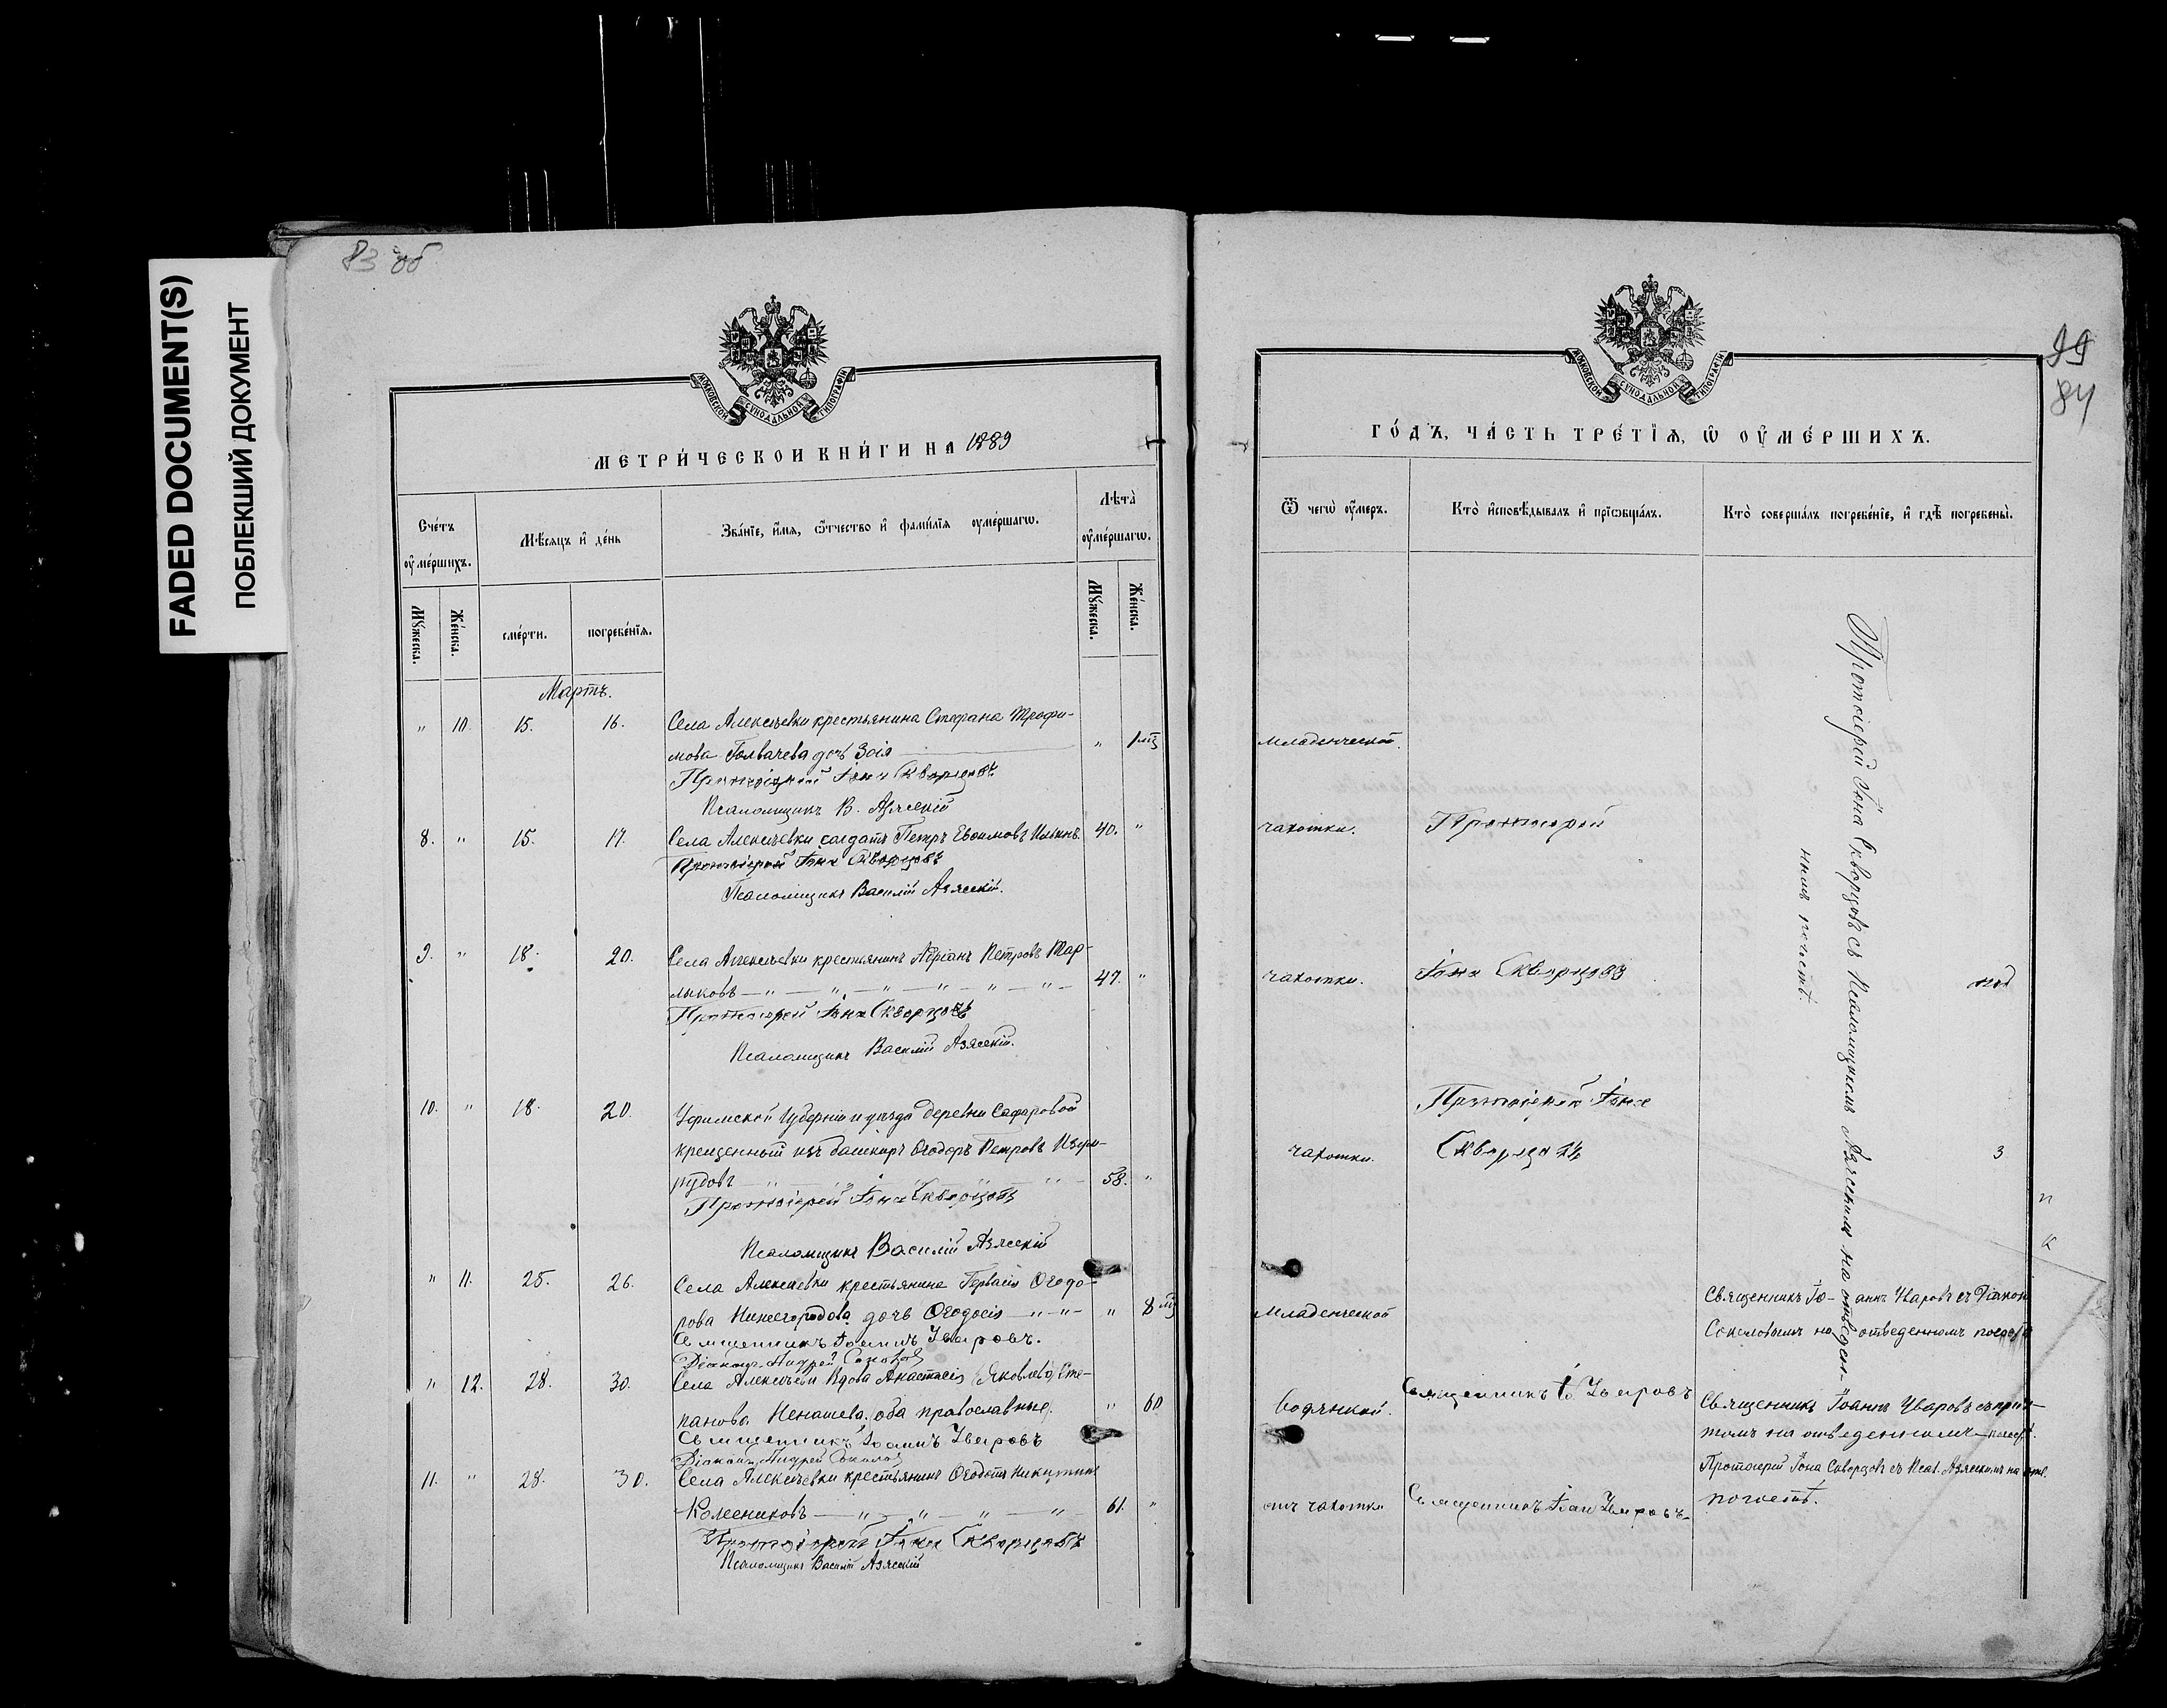 FADED DOCUMENT(S)
ПОБЛЕКШИЙ ДОКУМЕНТ
83 об
МОСКОВСКОЙ СУНОДАЛЬНОЙ ТИПОГРАФІИ
МЕТРИ́ЧЕСКОИ КНИ́ГИ НА 1889
Сче́тъ оумершихъ.
Мѣ́сяцъ и҆ де́нь
Зва́нїе, и҆́мя, ѿтчество и҆ фами́лїя оуме́ршагѡ.
Лѣта̀ оуме́ршагѡ.
Му́жеска.
Же́нска.
сме́рти.
погребе́нїя.
Му́жеска.
Же́нска.
Мартъ.
" 10. 15. 16. Села Алексѣевки крестьянина Стефана Трофи-
мова Толвачева дочь Зоія " 1 мц
Протоіерей Іона Скворцовъ
Псаломщикъ В. Азясскій
8. " 15. 17. Села Алексѣевки солдатъ Петръ Евѳимовъ Ильинъ. 40. "
Протоіерей Іона Скворцовъ
Псаломщикъ Василій Азясскій.
9. " 18. 20. Села Алексѣевки крестьянинъ Адріанъ Петровъ Мар-
лыковъ — " — " — " — " — " — " — 47. "
Протоіерей Іона Скворцовъ
Псаломщикъ Василій Азясскій.
10. " 18. 20. Уфимской Губерніи и уѣзда деревни Сафаровой
крещенный изъ башкиръ Ѳеодоръ Петровъ
рудовъ 58. "
Протоіерей Іона Скворцовъ
Псаломщикъ Василій Азясскій
" 11. 25. 26. Села Алексѣевки крестьянина Гервасія Ѳеодо-
рова Нижегородова дочь Ѳеодосія — " — " — " 8 мц
Священникъ Іоаннъ Уваровъ.
Діаконъ Андрей Соколовъ
" 12. 28. 30. Села Алексѣевки Вдова Анастасія (Яковлева) Сте-
панова Ненашева. (оба православные). " 60
Священникъ Іоаннъ Уваровъ
Діаконъ Андрей Соколовъ
11. " 28. 30. Села Алексѣевки крестьянинъ Ѳеодотъ Никитинъ
Колесниковъ — " — " — " — " — 61. "
Протоіерей Іона Скворцовъ
Псаломщикъ Василій Азясскій
99
84
МОСКОВСКОЙ СУНОДАЛЬНОЙ ТИПОГРАФІИ
ГО́ДЪ, ЧА́СТЬ ТРЕ́ТЇЯ, Ѡ ОУМЕ́РШИХЪ.
Ѿ чегѡ̀ оу҆́меръ.
Кто̀ и҆сповѣ́дывалъ и҆ прїѡбща́лъ.
Кто̀ соверша́лъ погребе́нїе, и҆ гдѣ̀ погребены̀.
младенческой.
чахотки. Протоіерей
чахотки. Іона Скворцовъ
Протоіерей Іона
чахотки. Скворцовъ
Протоіерей Іона Скворцовъ съ Псаломщикомъ Азясскимъ на отведен-
номъ погостѣ.
З
п
к
младенческой
Священникъ Іо- аннъ Уваровъ съ Діакон
Соколовымъ на отведенномъ погостѣ
водянкой. Священникъ Іо Уваровъ
Священникъ Іоаннъ Уваровъ съ прич-
томъ на отведенномъ погост.
отъ чахотки Священникъ Іоан Уваровъ
Протоіерей Іона Скворцовъ съ Псал. Азясскимъ на отв.
погостѣ.